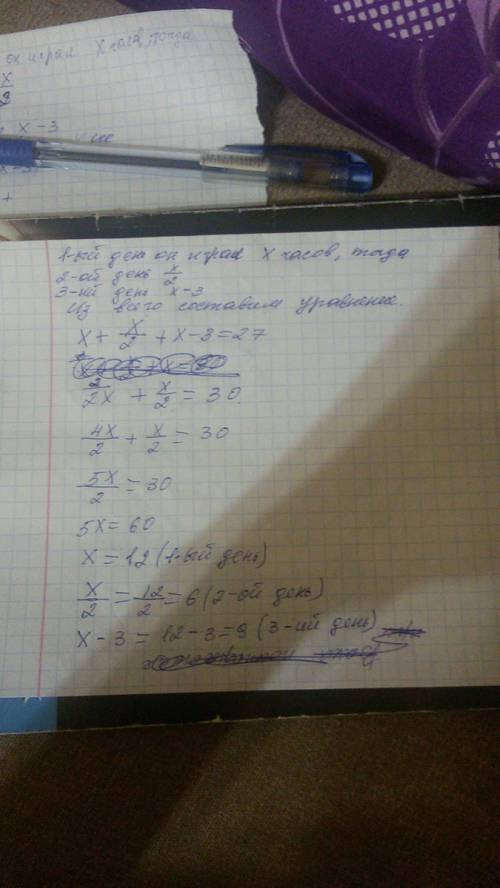 он играл x часов, тогда
x
2
x-3
1-ый день он играл x часов, тогда
2-ой день x/2
3-ий день x-3
Из всего составим уравнение.
x + x/2 + x-3 = 27
2x + x/2 = 30
4x/2 + x/2 = 30
5x/2 = 30
5x = 60
x = 12 (1-ый день)
x/2 = 12/2 = 6 (2-ой день)
x - 3 = 12 - 3 = 9 (3-ий день)